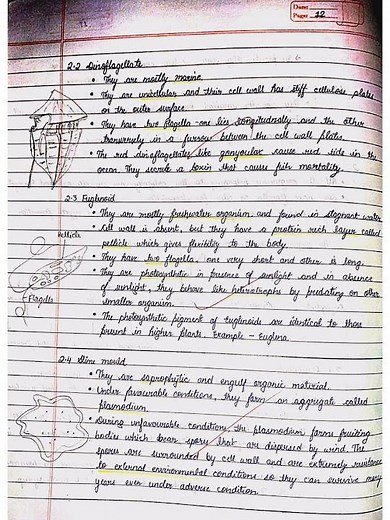 Date:
Page: 12
2.2 Dinoflagellate
• They are mostly marine.
• They are unicellular and their cell wall has stiff cellulose plates
on the outer surface.
• They have two flagella - one lies longitudinally and the other
transversely in a furrow between the cell wall plates.
• The red dinoflagellates like gonyaulax cause red tide in the
ocean. They secrete a toxin that cause fish mortality.
2.3 Euglenoid
• They are mostly freshwater organism and found in stagnant water.
• Cell wall is absent, but they have a protein rich layer called
pellicle which gives flexibility to the body.
• They have two flagella, one very short and other is long.
• They are photosynthetic in presence of sunlight and in absence
of sunlight, they behave like heterotrophs by predating on other
smaller organism.
• The photosynthetic pigment of Euglenoids are identical to those
present in higher plants. Example - Euglena.
Pellicle
Flagella
2.4 Slime mould
• They are saprophytic and engulf organic material.
• Under favourable conditions, they form an aggregate called
plasmodium.
• During unfavourable condition, the plasmodium forms fruiting
bodies which bear spores that are dispersed by wind. The
spores are surrounded by cell wall and are extremely resistance
to external environmental conditions so they can survive many
years even under adverse condition.